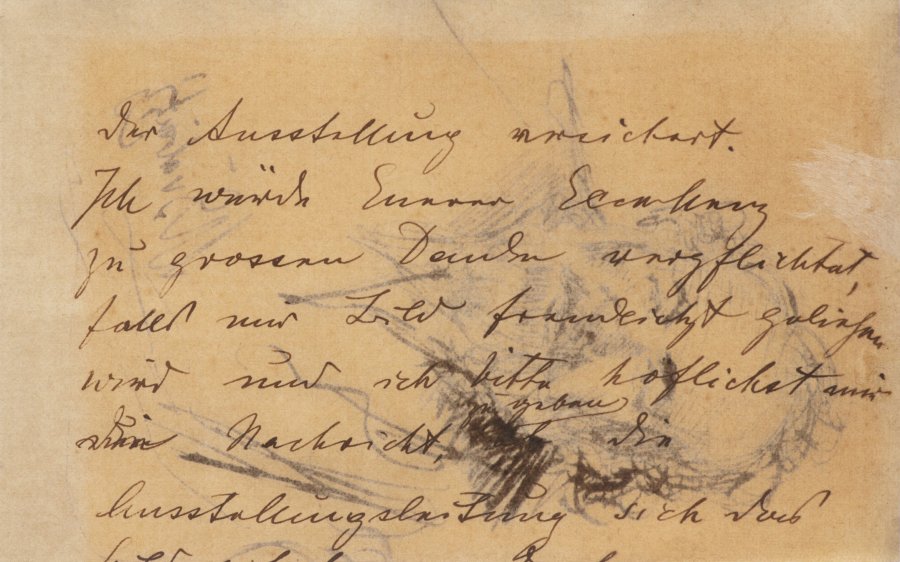 der Ausstellung versichert.
Ich würde Euerer Excellenz
zu grossem Danke verpflichtet,
falls mir Bild freundlichst geliehen
wird und ich bitte höflichst mir
zu geben
Nachricht, ob die
Ausstellungsleitung sich das
Bild